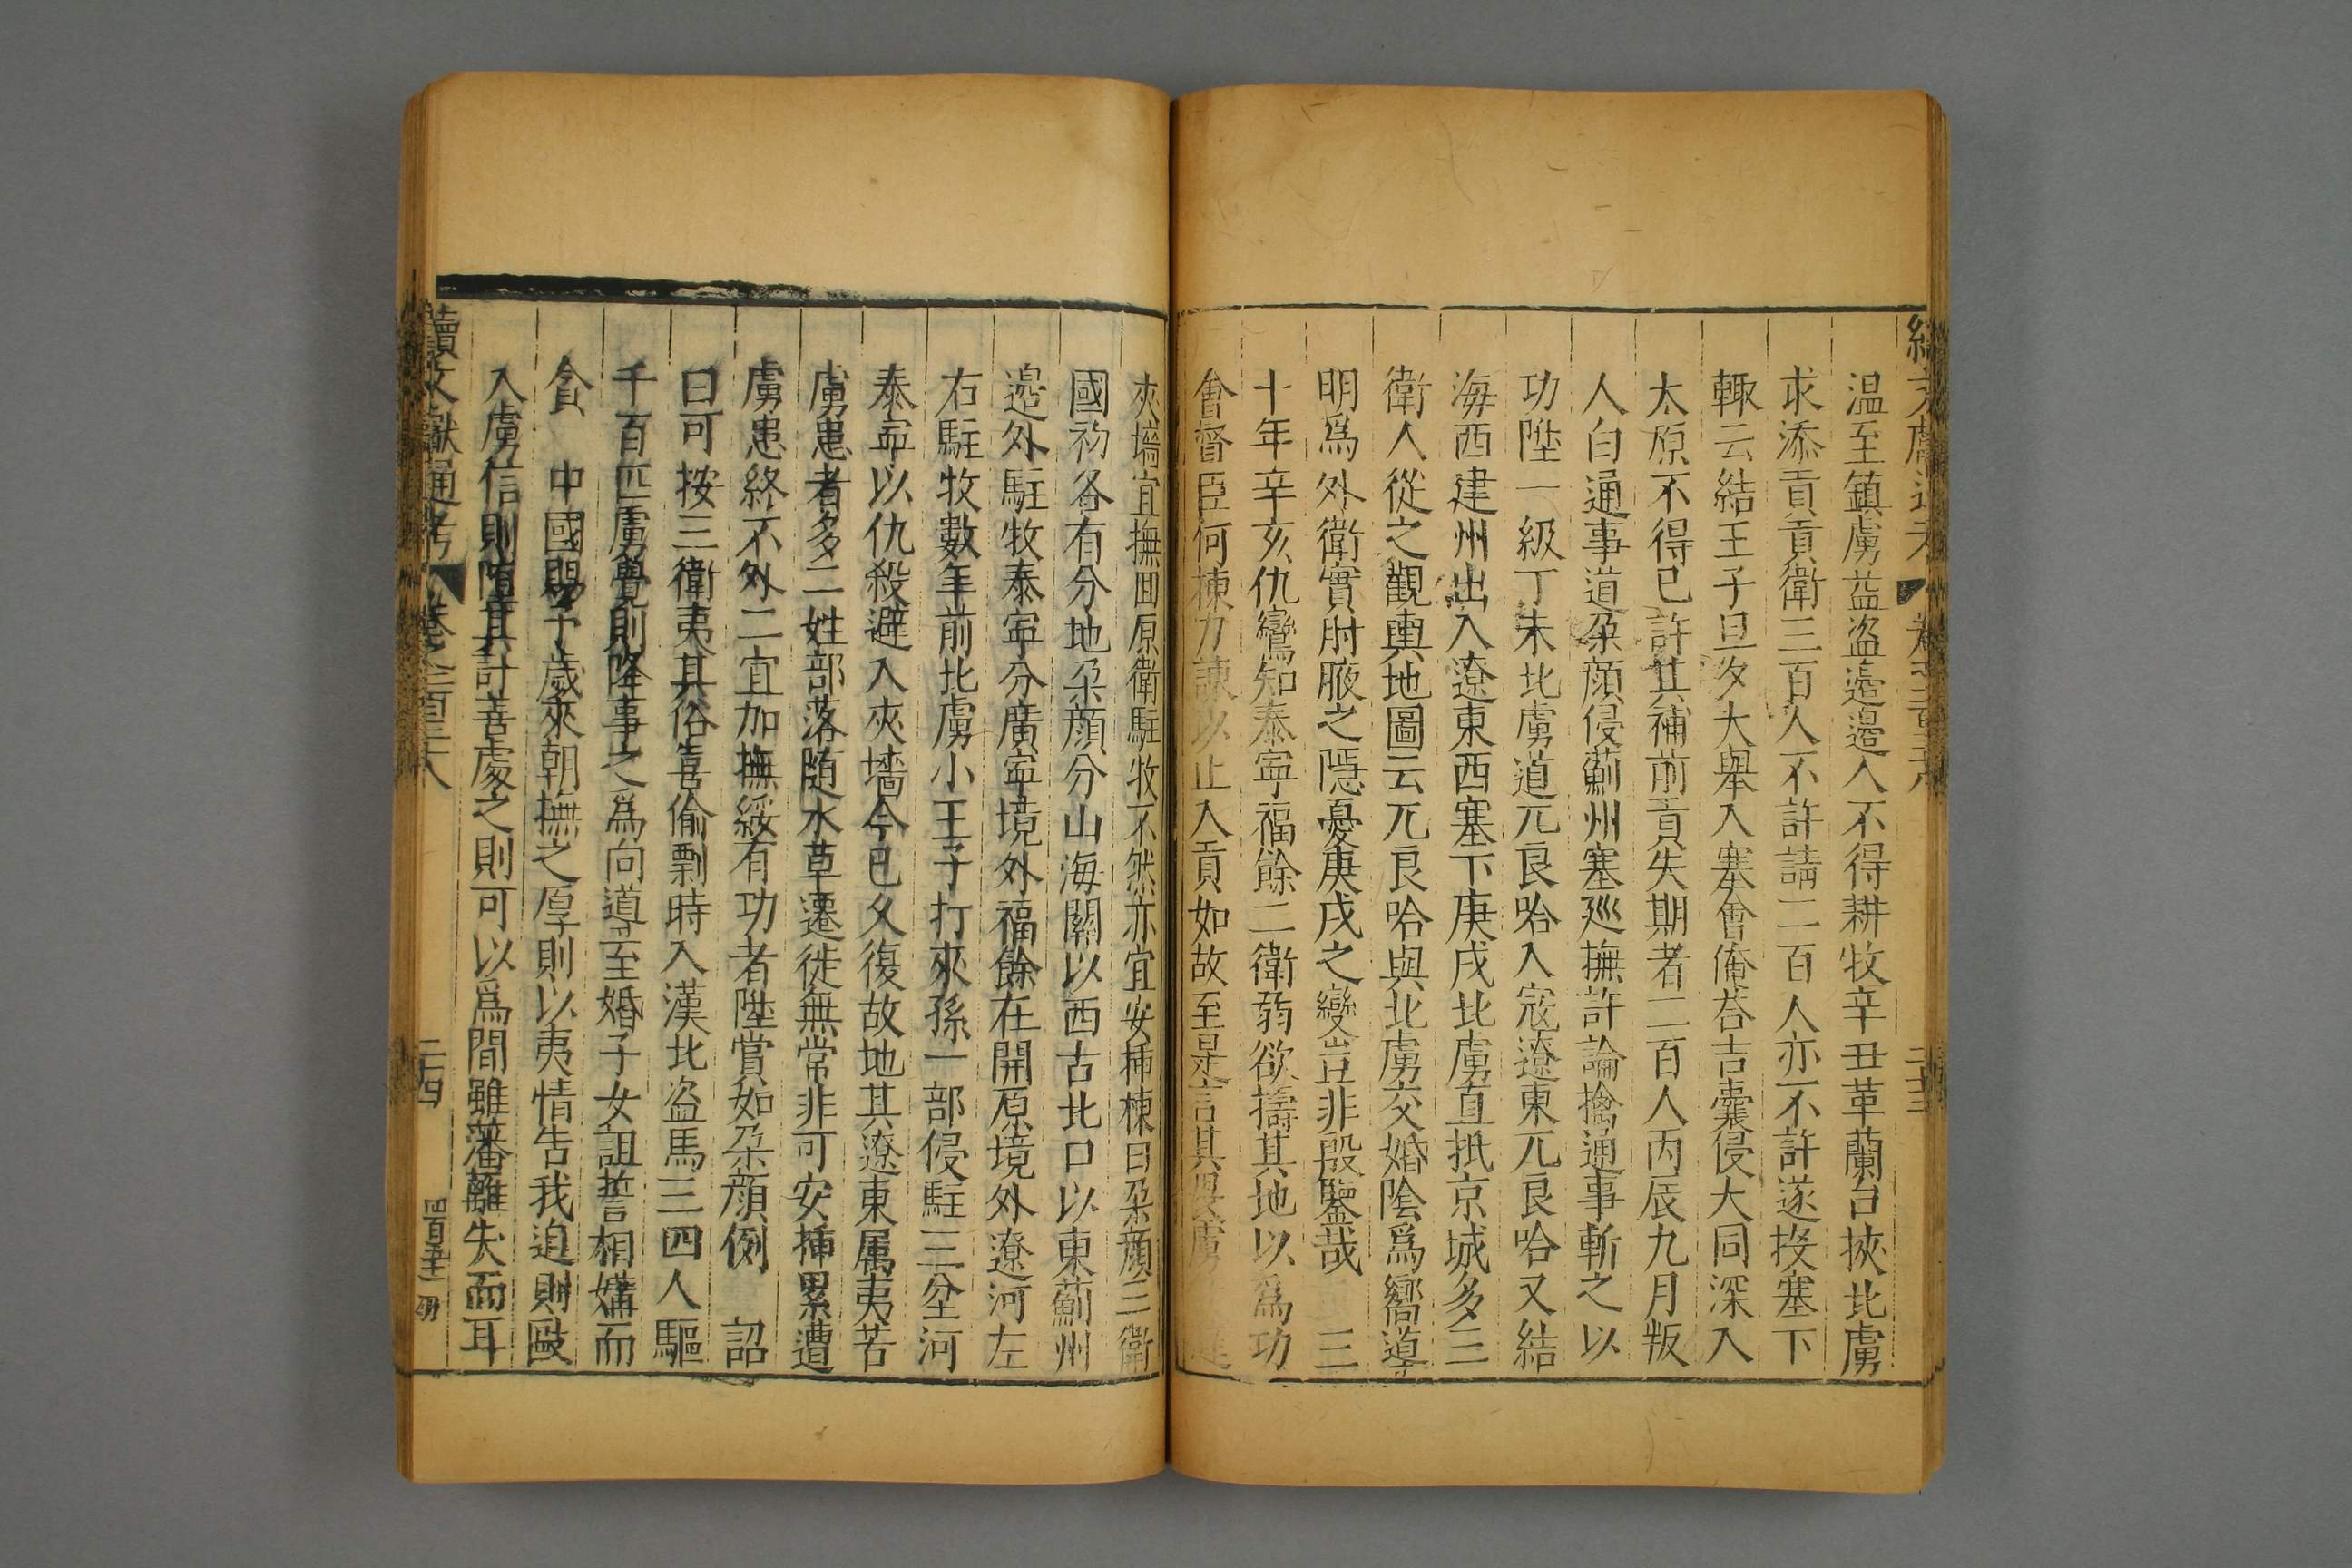 溫至鎮虜益盜邉邉人不得耕牧辛丑革蘭台挾北虜
求添貢貢衛三百人不許請二百人亦不許遂投塞下
輙云結王子旦夕大舉入塞會俺荅吉囊侵大同深入
太原不得已許其補前貢失期者二百人丙辰九月叛
人白通事道朶顏侵薊州塞廵撫許論擒通事斬之以
功陞一級丁未北虜道兀良哈入寇遼東兀良哈又結
海西建州出入遼東西塞下庚戌北虜直抵京城多三
衛人從之觀輿地圖云兀良哈與北虜交婚陰爲嚮導
明爲外衛實肘腋之隱憂庚戌之變豈非殷鑒哉 三
十年辛亥仇鸞知泰寜福餘二衛弱欲擣其地以爲功
會督臣何棟力諫以止入貢如故至是言其與虜
夾墻宜撫回原衛駐牧不然亦宜安揷棟曰朶顏三衛
國初各有分地朶顏分山海關以西古北口以東薊州
邉外駐牧泰寜分廣寜境外福餘在開原境外遼河左
右駐牧數年前北虜小王子打來孫一部侵駐三坌河
泰寜以仇殺避入夾墻今已久復故地其遼東属夷苦
虜患者多二姓部落随水草遷徙無常非可安揷累遭
虜患終不外二宜加撫綏有功者陞賞如朶顏例 詔
曰可按三衛夷其俗喜偷剽時入漢北盜馬三四人驅
千百匹虜覺則降事之爲向導至婚子女詛誓相媾而
貪 中國賜予歲來朝撫之厚則以夷情告我迫則敺
入虜信則墮其計善處之則可以爲間雖藩離失而耳
續文獻通考 卷之二百三十八
二十四